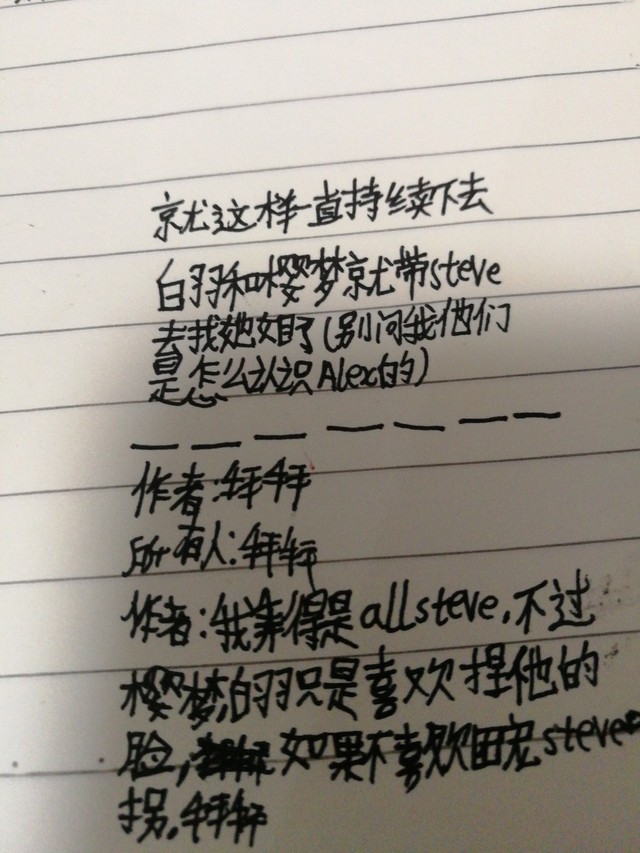 就这样一直持续下去
白羽和樱梦就带steve
去找她姐了(别问我他们
是怎么认识Alex的)
作者:
所有人:
作者:我觉得是allsteve,不过
樱梦,白羽只是喜欢捏他的
脸,如果不喜欢团宠steve
拐.